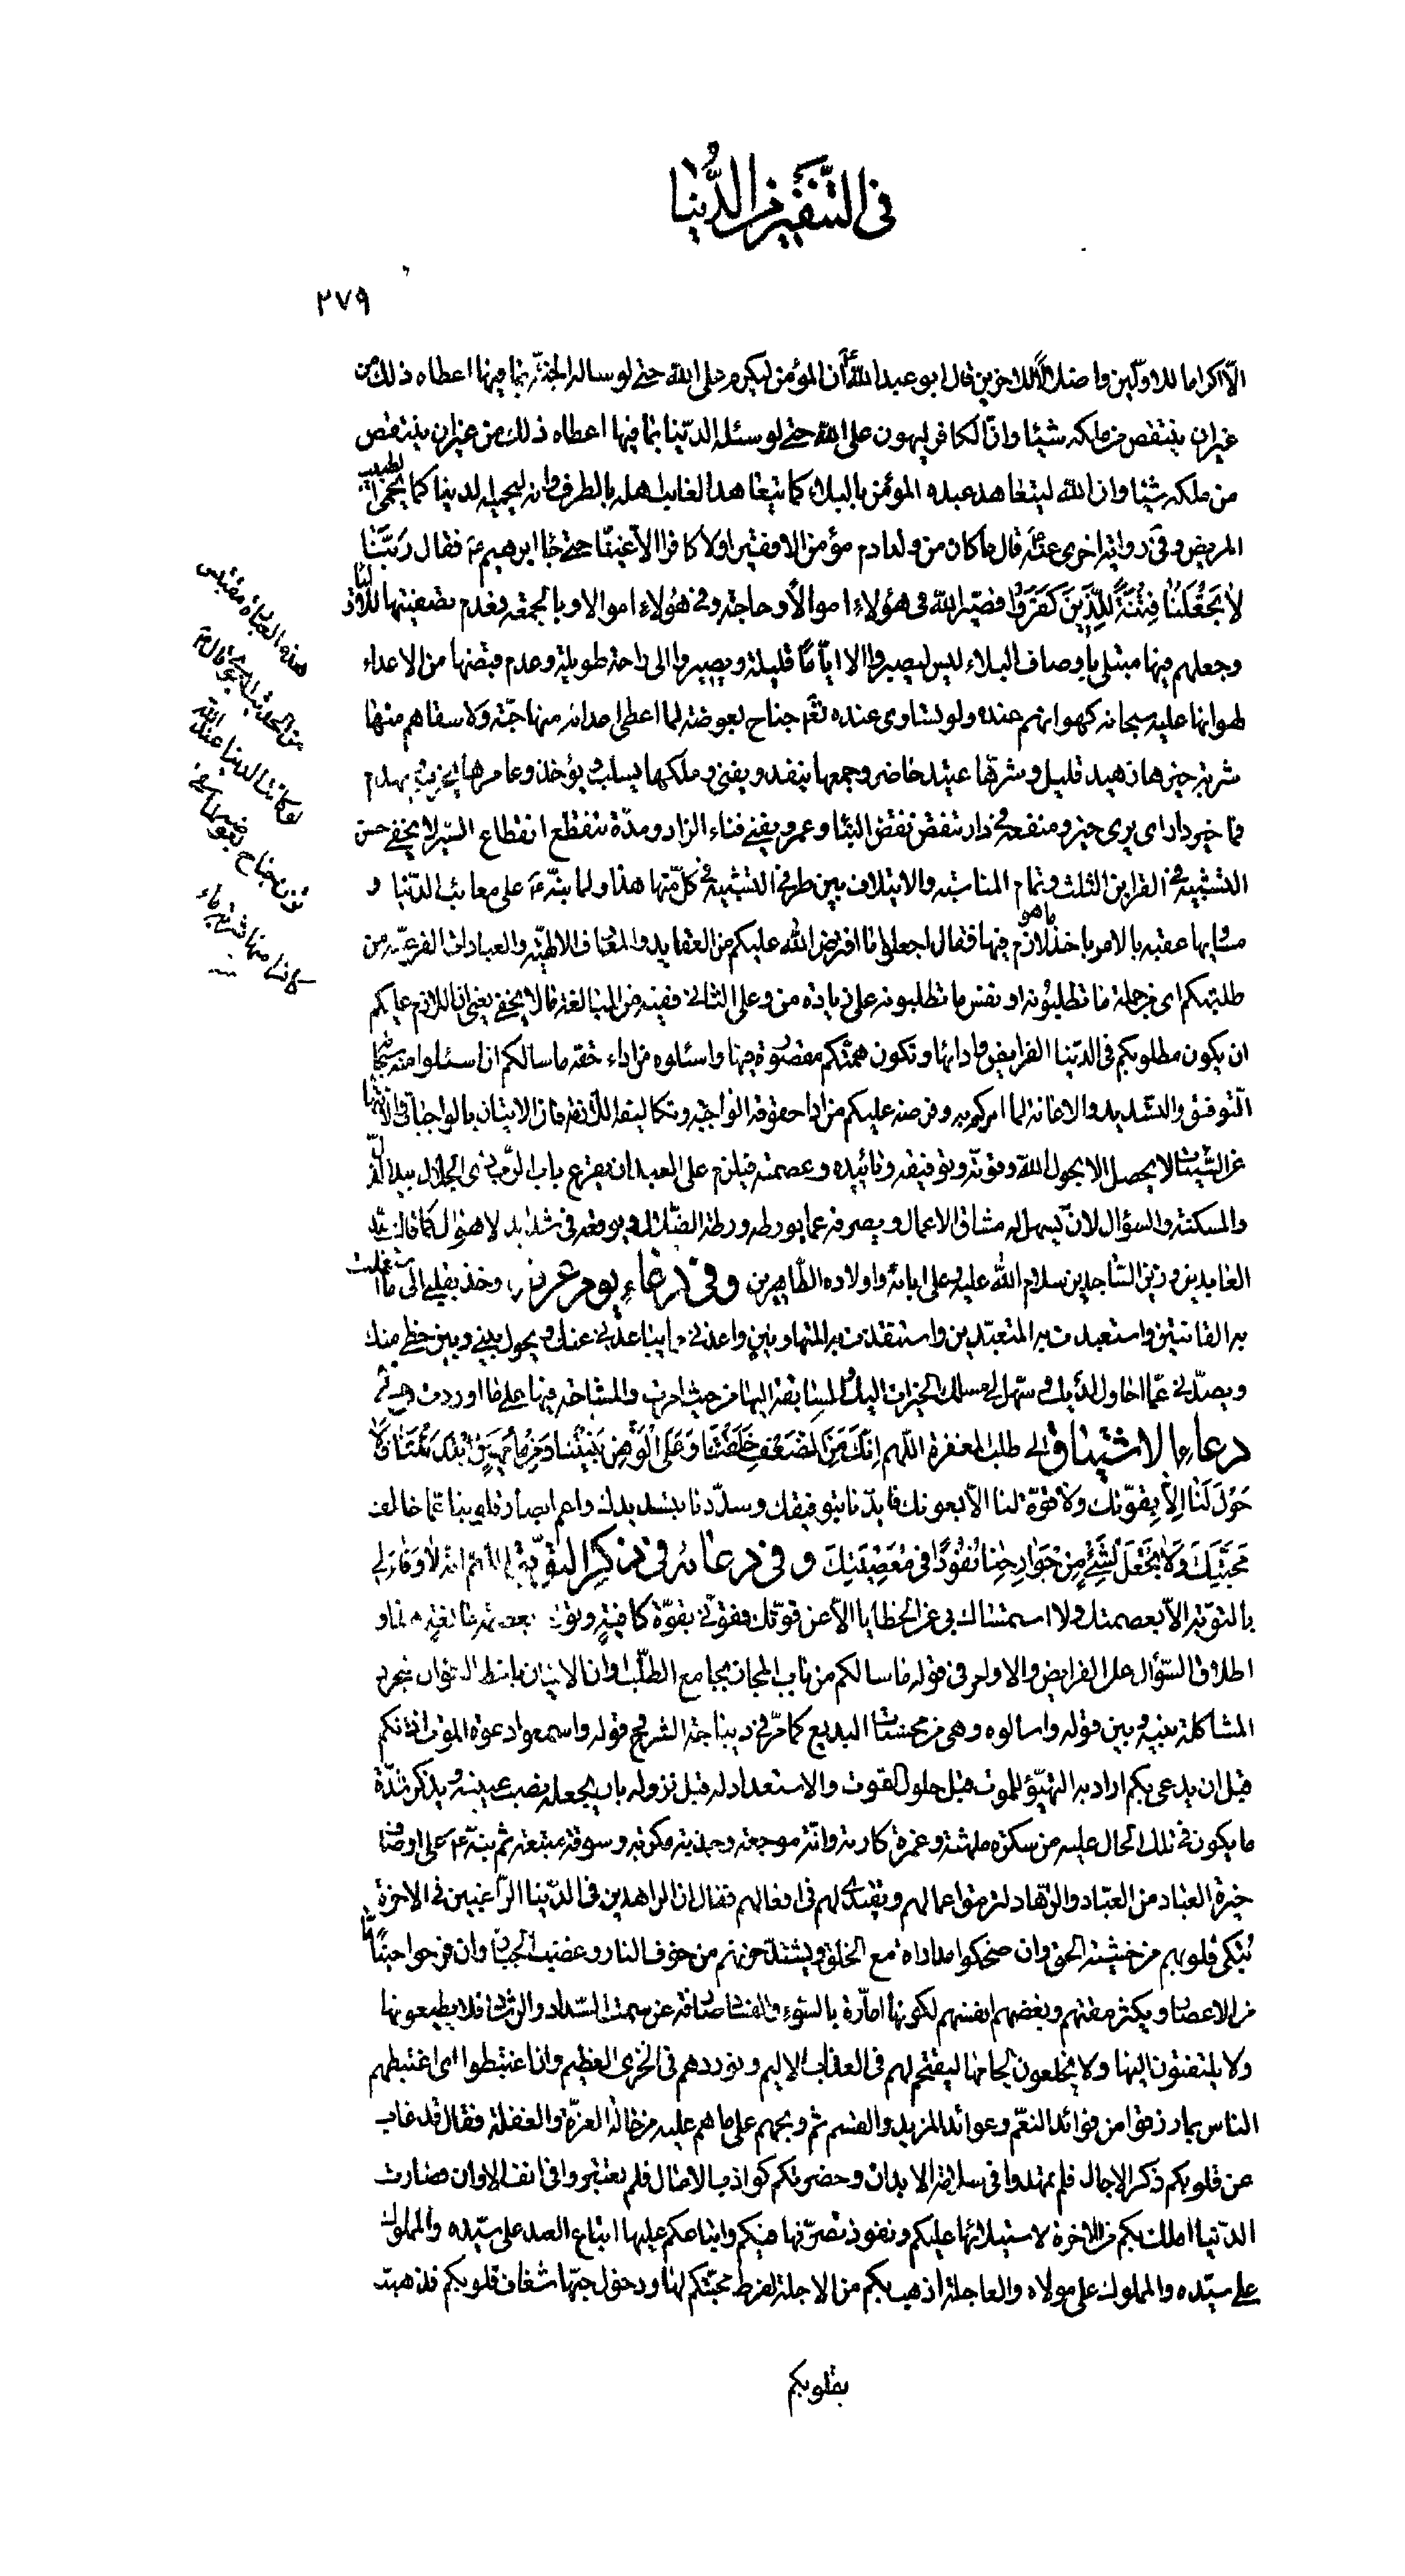 في التنفير من الدُّنيا
٢٧٩
الّا اكراما للاوّلين و اضلالاً للاخرين قال ابو عبد الله ان المؤمن ليكرم على الله حتى لو ساله الجنّة بما فيها اعطاه ذلك من
غير ان ينتقص من ملكه شيئا وانّ الكافر ليهون على الله حتى لو سئله الدّنيا بما فيها اعطاه ذلك من غير ان ينتقص
من ملكه شيئا وان الله ليتعاهد عبده المؤمن بالبلاء كما يتعاهد الغايب اهله بالطرف وانه ليحميه الدنيا كما يحمى الطبيب
المريض وفي رواية اخرى عنه قال ما كان من ولد ادم مؤمن الا فقيرا ولا كافرا الا غنيّا حتى جاء ابرهيم ع فقال رَبَّنا
لا تَجْعَلْنا فِتْنَةً لِلَّذينَ كَفَرُوا فصيّر الله في هؤلاء اموالاً وحاجة وفي هؤلاء اموالا وحاجة وعدم تصفيتها لاوليائه
وجعلهم فيها مبتلى باوصاف البلاء ليس ليصبروا الا ايّامًا قليلة ويصيروا الى راحة طويلة وعدم قبضها من الاعداء
لهوانها عليه سبحانه كهوانهم عنده ولو تساوى عنده تع جناح بعوضة لما اعطى اعدائه منها حبّة ولا سقاهم منها
شربة خيرها زهيد قليل وشرّها عتيد حاضر وجمعها ينفد ويفنى وملكها يسلب ويؤخذ وعامرها يخرب ويهدم
فما خير دار اى يرى خير ومنفعة في دار تنقض نقض البناء وعمر يفنى فناء الزاد ومدّة تنقطع انقطاع السّير لا يخفى حسن
التشبيه في القراين الثلث وتمام المناسبة والايتلاف بين طرفى التشبيه في كلّ منها هذا ولما نبّه ع على معائب الدّنيا و
مثالبها عقبه بالامر باخذ ما هو لازم فيها فقال اجعلوا ما افترض الله عليكم من العقايد والمعارف الالهيّة والعبادات الفرعيّة من
طلبتكم اى من جملة ما تطلبونه او نفس ما تطلبونه على زيادة من وعلى الثانى ففيه من المبالغة ما لا يخفى يعنى ان اللازم عليكم
ان يكون مطلوبكم في الدّنيا الفرايض وادائها وتكون همتكم مقصورة فيها واسئلوه من اداء حقّه ما سالكم اى اسئلوا منه سبحانه
التوفيق والتسديد والاعانة لما امركم به وفرضه عليكم من اداء حقوقه الواجبة وتكاليفه اللازمة فان الاتيان بالواجبات والانتهاء
عن السّيئات لا يحصل الا بحول الله وقوّته وتوفيقه وتائيده وعصمته فيلزم على العبد ان يقرع باب الرّب ذى الجلال بيد الذّل
والمسكنة والسؤال لان يسهل له مشاق الاعمال ويصرفه عما يورطه ورطة الضّلال ويوقعه في شدايد الاهوال كما قال سيّد
العابدين وزين السّاجدين سلام الله عليه وعلى ابائه واولاده الطّاهرين وفي دعاء يوم عرفة وخذ بقلبى الى ما استعملت
به القانتين واستعبدت به المتعبّدين واستنقذت به المتهاونين واعذنى مما يباعدنى عنك ويحول بينى وبين حظى منك
ويصدّنى عمّا احاول لديك وسهّل لى مسلك الخيرات اليك والمسابقة اليها من حيث امرت والمشاحة فيها على ما اردت وفي
دعاء الاشتياق الى طلب المغفرة اللهم اِنَّكَ مِنَ الضَّعْفِ خَلَقْتَنا وَعَلَى الْوَهْنِ بَنَيْتَنا وَمِنْ ماءٍ مَهينٍ ابْتَدَأْتَنا فَلا
حَوْلَ لَنا اِلّا بِقُوَّتِكَ ولا قوّة لنا الّا بعونك فايّدنا بتوفيقك وسدّدنا بتسديدك واعم ابصار قلوبنا عمّا خالف
مَحَبَّتَكَ وَلا تَجْعَلْ لِشَئٍ مِنْ جَوارِحِنا نُفُوذًا في مَعْصِيَتِكَ وفي دعائه في ذكر التوبة اللهم انه لا وفاء لى
بالتوبة الّا بعصمتك ولا استمساك بى عن الخطايا الّا عن قوّتك فقوّنى بقوّة كافية وتولنى بعصمة مانعة هذا و
اطلاق السّؤال على الفرايض والاوامر في قوله ما سالكم من باب المجاز بجامع الطّلب وان الاتيان بلفظ السؤال لمجرد
المشاكلة بينه وبين قوله واسالوه وهى من محسّنات البديع كما مرّ في ديباجة الشرح قوله واسمعوا دعوة الموت اذانكم
قبل ان يدعى بكم اراد به التهيّؤ للموت قبل حلول الفوت والاستعداد له قبل نزوله بان يجعله نصب عينيه ويذكر شدّة
ما يكون في تلك الحال عليه من سكرة ملهثة وغمرة كارثة وانّة موجعة وجذبة مكربة وسوقة متعبة ثم نبّه ع على اوصاف
خيرة العباد من العبّاد والزّهاد ليرمقوا اعمالهم ويقتدى لهم في افعالهم فقال ان الزاهدين في الدّنيا الرّاغبين في الاخرة
تبكى قلوبهم من خشية الحق وان ضحكوا مداراة مع الخلق ويشتدّ حزنهم من خوف النار وغضب الجبار وان فرحوا حينًا ما
من الاعصار ويكثر مقتهم وبغضهم انفسهم لكونها امّارة بالسّوء والفحشاء صارفة عن سمت السّداد والرشاد فلا يطيعونها
ولا يلتفتون اليها ولا يخلعون لجامها ليقتحم لهم في العذاب الاليم وتوردهم في الخزى العظيم وان اغتبطوا اى اغتبطهم
الناس بما رزقوا من فوائد النعم وعوائد المزيد والقسم ثم وبخهم على ما هم عليه من حالة الغرّة والغفلة فقال قد غاب
عن قلوبكم ذكر الاجال فلم تمهدوا في سلامة الابدان وحضرتكم كواذب الامال فلم تعتبروا في انف الاوان فصارت
الدّنيا املك بكم من الاخرة لاستيلائها عليكم ونفوذ تصرّفها فيكم واتباعكم عليها اتباع العبد على سيّده والمملوك
على سيّده والمملوك على مولاه والعاجلة اذهب بكم من الاجلة لفرط محبّتكم لها ودخول حبّها شغاف قلوبكم فذهبت
بقلوبكم
هذه العبارة مقتبس
من الحديث النبوي قال ص
لو كانت الدنيا عند الله
تزن جناح بعوضة لما سقى
كافرا منها شربة ماء